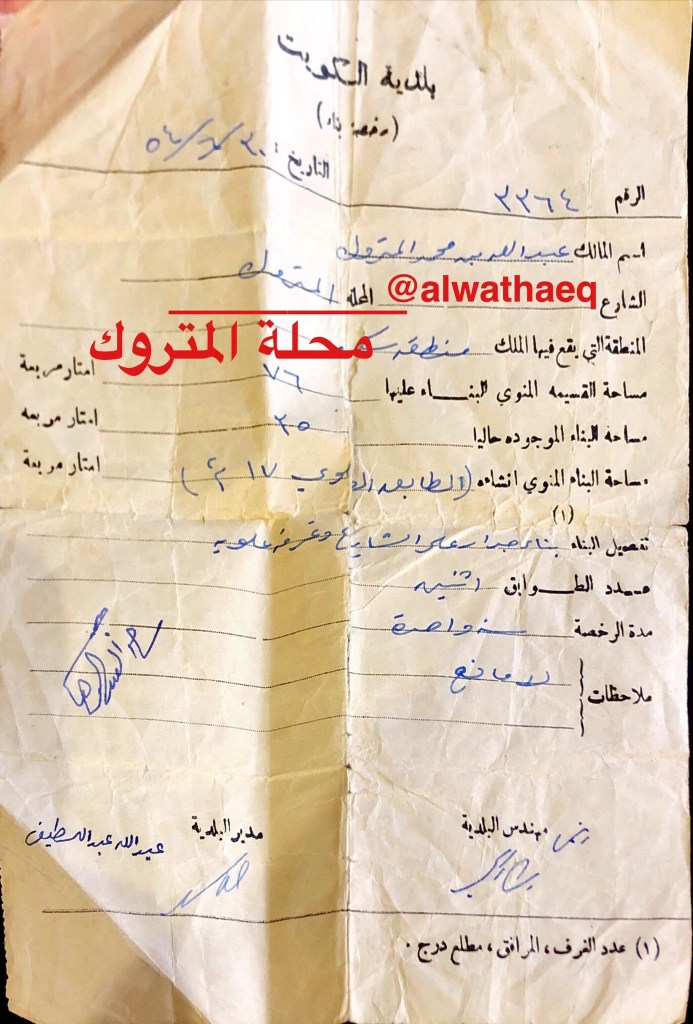 بلدية الكويت
(رخصة بناء)
التاريخ : ٣٠/٦/٥٤
الرقم ٣٣٦٤
اسم المالك عبد العزيز محمد المتروك
الشارع المحلة المتروك
@alwathaeq
محلة المتروك
المنطقة التي يقع فيها الملك منطقة
مساحة القسيمه المنوي البناء عليها ٧٦ امتار مربعة
مساحه البناء الموجوده حاليا ٣٥ امتار مربعه
مساحة البناء المنوي انشاءه (الطابق العلوي ١٧ م٢) امتار مربعة
(١)
تفصيل البناء بناء جدار على الشارع وغرفه علويه
عدد الطوابق اثنين
مدة الرخصة سنه واحدة
ملاحظات لا مانع
مهندس البلدية
مدير البلدية عبدالله عبداللطيف
(١) عدد الغرف ، المرافق ، مطلع درج .